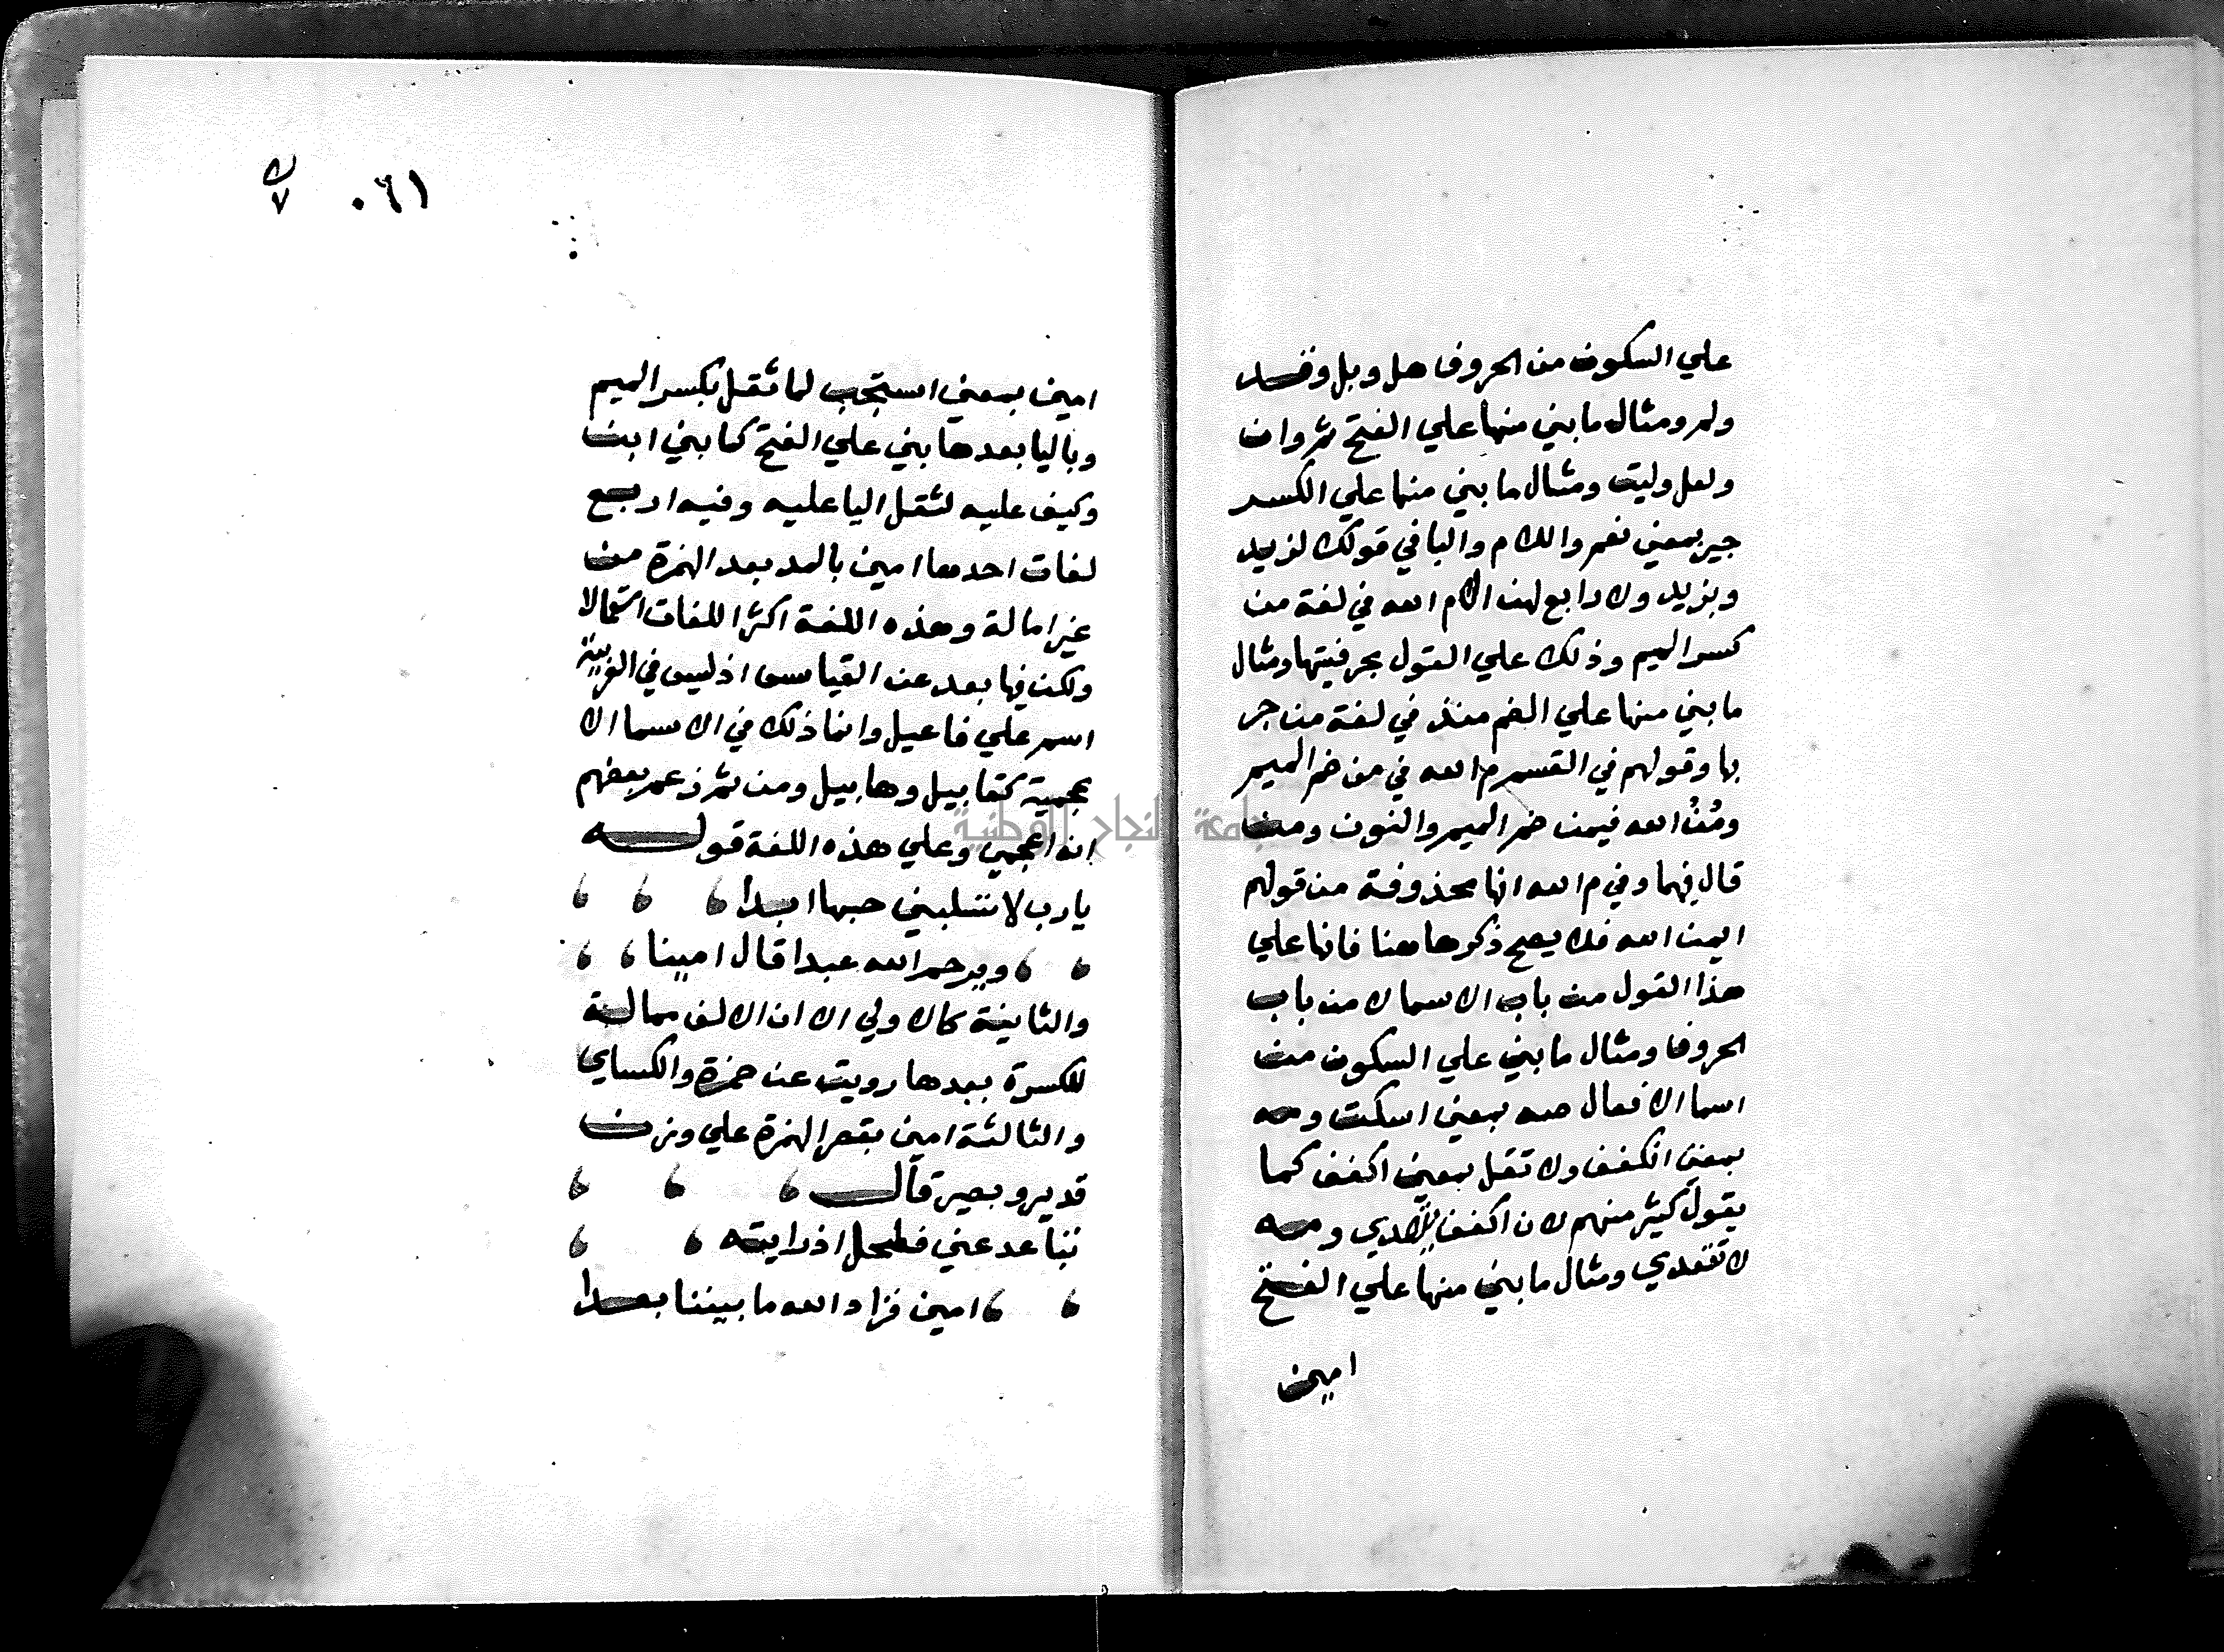 علي السكون من الحروف هل وبل وقد
ولم ومثال ما بني منها علي الفتح ثم وان
ولعل وليت ومثال ما بني منها علي الكسر
جير بمعني نعم واللام والبا في قولك لزيد
وبزيد ولا رابع لهن الا م الله في لغة من
كسر الميم وذلك علي القول بحرفيتها ومثال
ما بني منها علي الضم منذ في لغة من جر
بها وقولهم في القسم م الله في من ضم الميم
ومُنُ الله فيمن ضم الميم والنون ومن
قال فيهما وفي م الله انها محذوفة من قولهم
ايمن الله فلا يصح ذكرها هنا فانها علي
هذا القول من باب الاسما لا من باب
الحروف ومثال ما بني علي السكون من
اسما الافعال صه بمعني اسكت ومه
بمعني انكفف ولا تقل بمعني اكفف كما
يقول كثير منهم لان اكفف يتعدي ومه
لا تتعدي ومثال ما بني منها علي الفتح
امين
٠٦١
٧
امين بمعني استجب لما ثقل بكسر الميم
وباليا بعدها بني علي الفتح كما بني اين
وكيف عليه لثقل اليا عليه وفيه اربع
لغات احدها امين بالمد بعد الهمزة من
غير امالة وهذه اللغة اكثر اللغات استعمالا
ولكن فيها بعد عن القياس اذ ليس في العربية
اسم علي فاعيل وانما ذلك في الاسما الا
عجمية كقابيل وهابيل ومن ثم زعم بعضهم
انه اعجمي وعلي هذه اللغة قوله
يا رب لا تسلبني حبها ابدا
ويرحم الله عبدا قال امينا
والثانية كالاولي الا ان الالف ممالة
للكسرة بعدها رويت عن حمزة والكساي
والثالثة امين بقصر الهمزة علي وزن
قدير وبصير قال
تباعد عني فطحل اذ رايته
امين فزاد الله ما بيننا بعدا
جامعة النجاح الوطنية